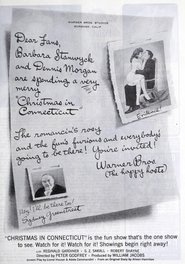 WARNER BROS. STUDIOS
BURBANK, CALIF.
Dear Fans,
Barbara Stanwyck
and Dennis Morgan
are spending a very
merry
"Christmas in
Connecticut"
The romancin's rosy
and the fun's furious and everybody's
going to be there! You're invited!
Warner Bros.
(The happy hosts)
Hey! I'll be there too!
Sydney Greenstreet
"CHRISTMAS IN CONNECTICUT" is the fun show that's the one show
to see. Watch for it! Watch for it! Showings begin right away!
with REGINALD GARDINER · S. Z. SAKALL · ROBERT SHAYNE
Directed by PETER GODFREY · Produced by WILLIAM JACOBS
Screen Play by Lionel Houser & Adele Comandini · From an Original Story by Aileen Hamilton